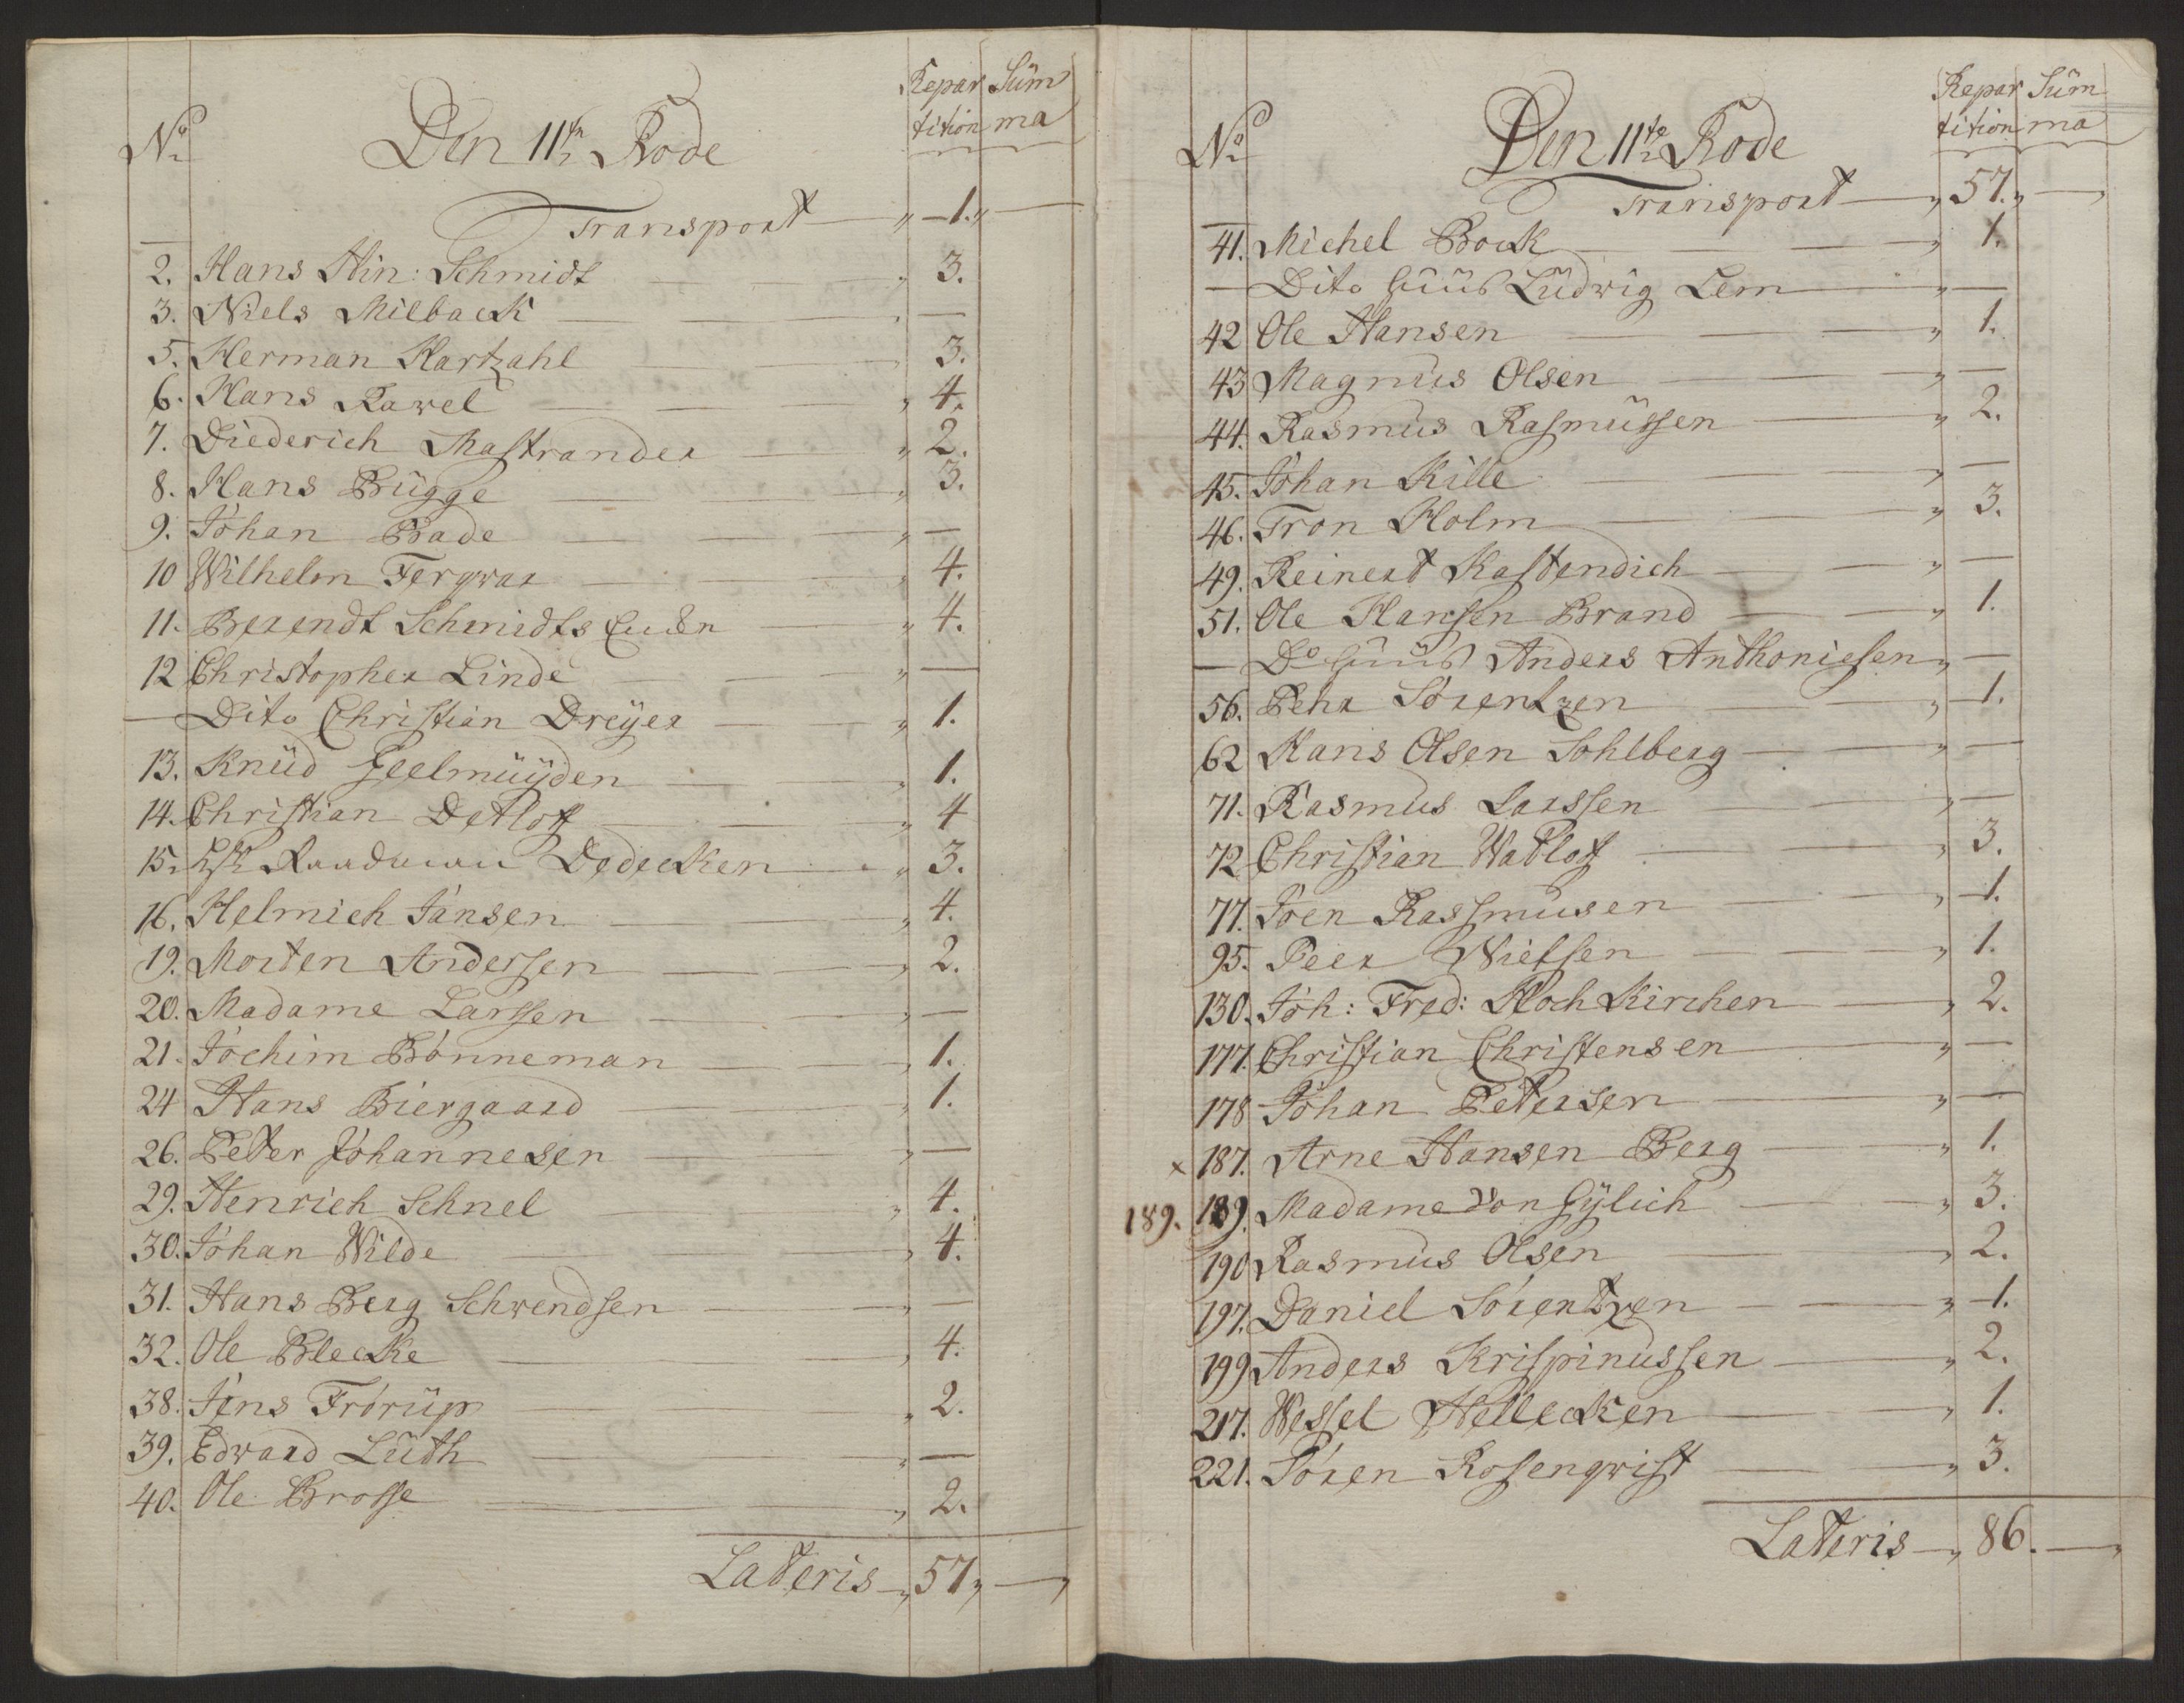 No Den 11te Rode Repar Süm
tition ma
Transport „ 1. „ —
2. Hans Hin: Schmidt „ 3.
3. Niels Milback „ —
5. Herman Hartzahl „ 3.
6. Hans Rawel „ 4.
7. Diederich Mastrander „ 2.
8. Hans Bügge „ 3.
9. Johan Bade „ —
10 Wilhelm Ferqwar „ 4.
11. Berendt Schmidts Encken „ 4.
12 Christopher Linde „ —
— Dito Christian Dreyer „ 1.
13. Knüd Geelmüyden „ 1.
14. Christian Detlof „ 4
15. Raadman Dedecken „ 3.
16. Helmich Jansen „ 4.
19. Morten Anderssen „ 2.
20. Madame Larssen „ —
21. Jochim Bönneman „ 1.
24 Hans Biergaard „ 1.
26. Petter Johannesen „ —
29. Henrich Schnel „ 4.
30. Johan Wilde „ 4.
31. Hans Berg Schwendsen „ —
32. Ole Blecke „ 4.
38. Jens Frörüp „ 2.
39. Edward Lüth „ —
40. Ole Brosse „ 2.
Lateris „ 57 „ —
No Den 11te Rode Repar Süm
tition ma
Transport „ 57. „ —
41. Michel Bock „ 1.
— Dito Huus Lüdwig Lem „ —
42 Ole Hansen „ 1.
43 Magnus Olsen „ —
44. Rasmus Rasmüssen „ 2.
45. Johan Kille „ —
46. Tron Holm „ 3.
49. Reinert Kastendich „ —
51. Ole Hansen Brand „ 1.
— Do Huus Anders Anthoniesen „ —
56. Pehr Sörentzen „ 1.
62 Hans Olsen Sohlberg „ —
71. Rasmus Larssen „ —
72 Christian Watlof „ 3.
77. Joen Rassmusen „ 1.
95. Peer Nielsen „ 1.
130. Joh: Fred: Hoch Kirchen „ 2.
177. Christian Christensen „ —
178 Johan Petersen „ —
x 187. Arne Hansen Berg „ 1.
189. 189. Madame von Gylich „ 3.
190 Rasmus Olsen „ 2.
197. Daniel Sörentzen „ 1.
199 Anders Krispinussen „ 2.
217. Wessel Hellecken „ 1.
221. Sören Rosenqwist „ 3.
Lateris „ 86. —